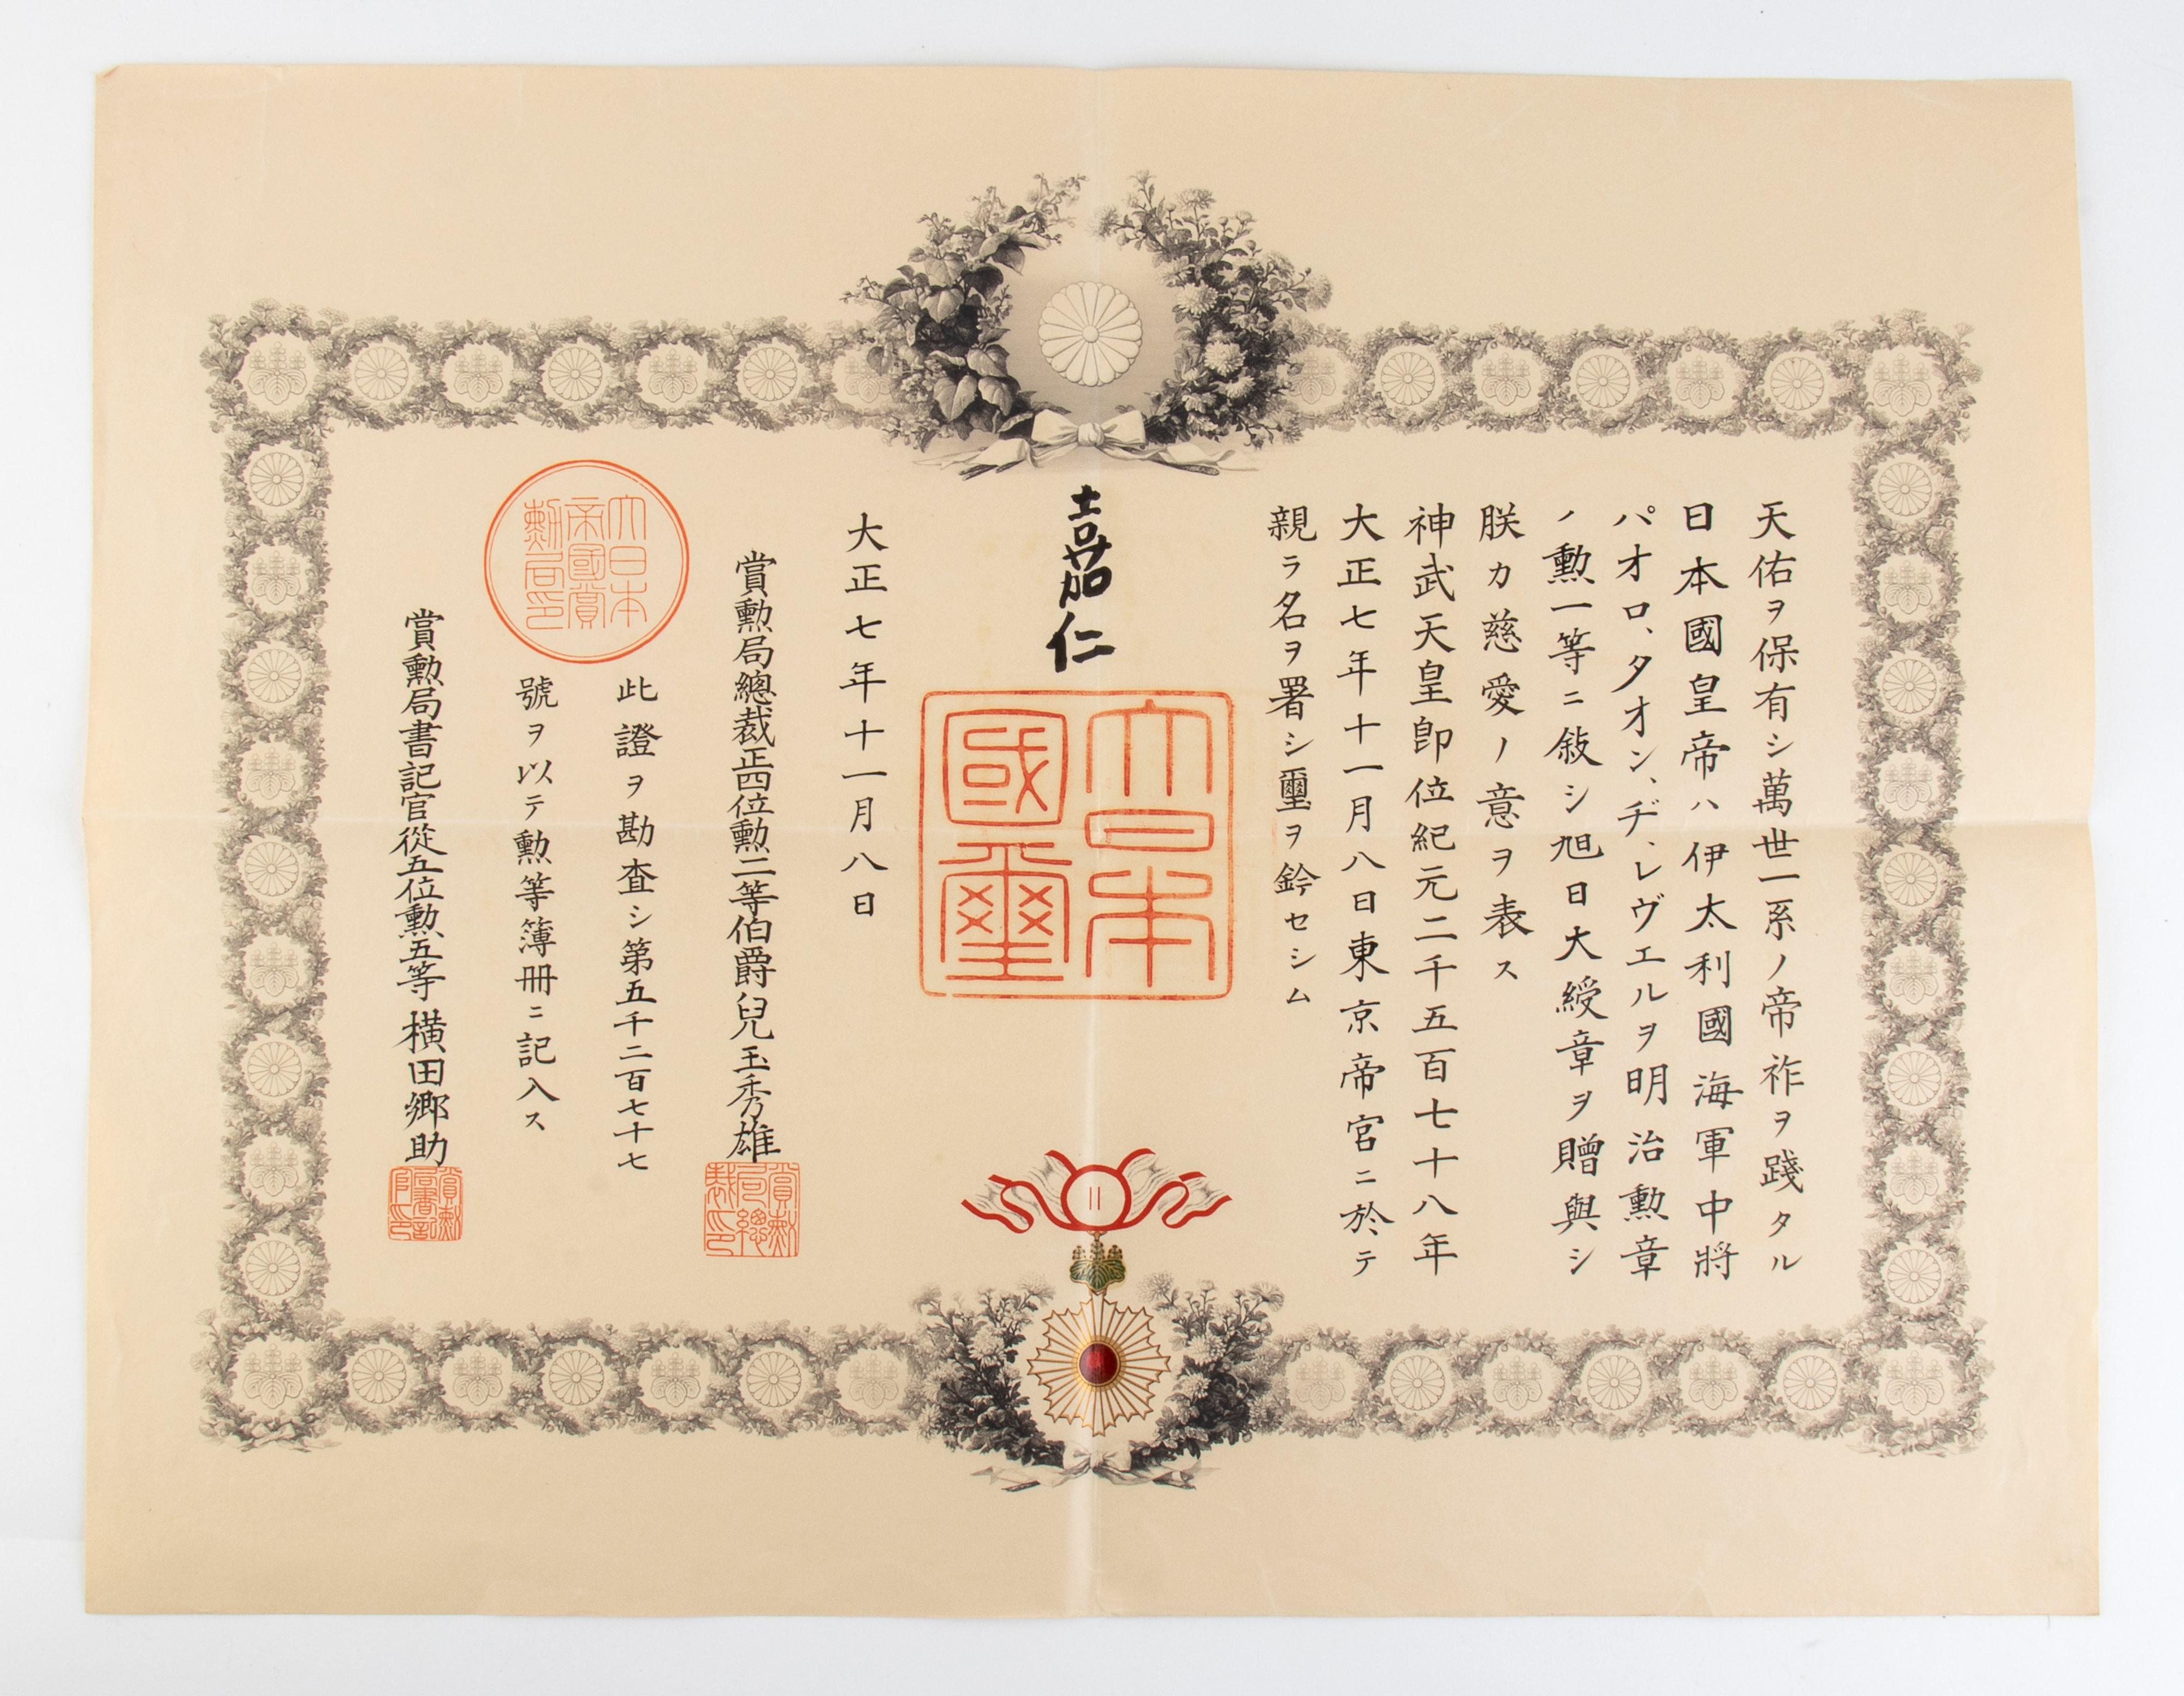 天佑ヲ保有シ萬世一系ノ帝祚ヲ踐タル
日本國皇帝ハ伊太利國海軍中將
パオロ、タオン、ヂ、レヴエルヲ明治勲章
ノ勲一等ニ敍シ旭日大綬章ヲ贈與シ
朕カ慈愛ノ意ヲ表ス
神武天皇卽位紀元二千五百七十八年
大正七年十一月八日東京帝宮ニ於テ
親ラ名ヲ署シ璽ヲ鈐セシム
嘉仁
大日本國璽
大正七年十一月八日
賞勲局總裁正四位勲二等伯爵兒玉秀雄
賞勲局總裁印
此證ヲ勘査シ第五千二百七十七
號ヲ以テ勲等簿冊ニ記入ス
大日本帝國賞勲局印
賞勲局書記官從五位勲五等橫田郷助
賞勲局書記官印